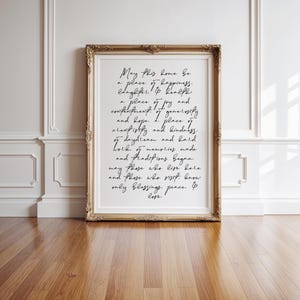 May this home be
a place of happiness,
laughter & health
a place of joy and
contentment of generosity
and hope. A place of
creativity and kindness
of daydream and hard
work of memories made
and traditions began
may those who live here
and those who visit have
only blessings, peace &
love.